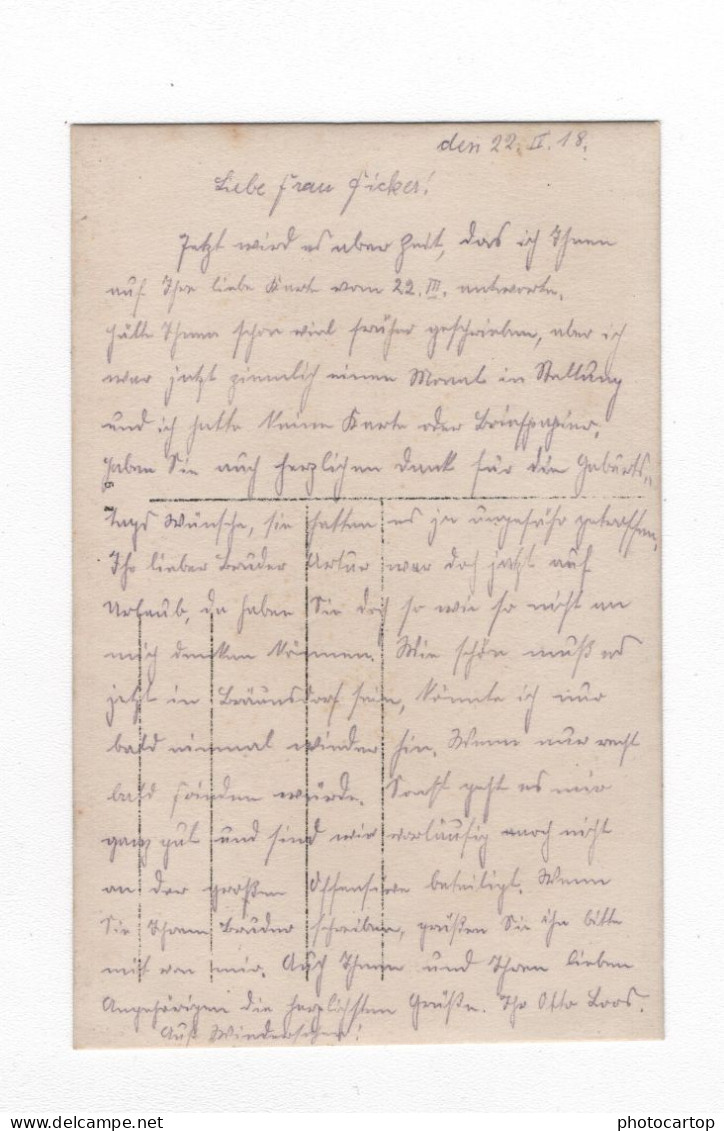 den 22. IV. 18.
Liebe Frau Ficker!
Jetzt wird es aber Zeit, das ich Ihnen
auf Ihre liebe Karte vom 22. III. antworte.
Hätte Ihnen schon viel früher geschrieben, aber ich
war jetzt ziemlich einen Monat in Stellung
und ich hatte keine Karte oder Briefpapier.
Haben Sie auch herzlichen Dank für die Geburts„
tags Wünsche, sie hatten es ja ungefähr getroffen.
Ihr lieber Bruder Artur war doch jetzt auf
Urlaub, da haben Sie doch so wie so nicht an
mich denken können. Wie schön muß es
jetzt in Bräunsdorf sein, könnte ich nur
bald einmal wieder hin. Wenn nur recht
bald Frieden würde. Sonst geht es mir
ganz gut und sind wir vorläufig noch nicht
an der großen Offensive beteiligt. Wenn
Sie Ihrem Bruder schreiben, grüßen Sie ihn bitte
mit von mir. Auch Ihnen und Ihren lieben
Angehörigen die herzlichsten Grüße. Ihr Otto Loos.
Auf Wiedersehen!
delcampe.net
photocartop